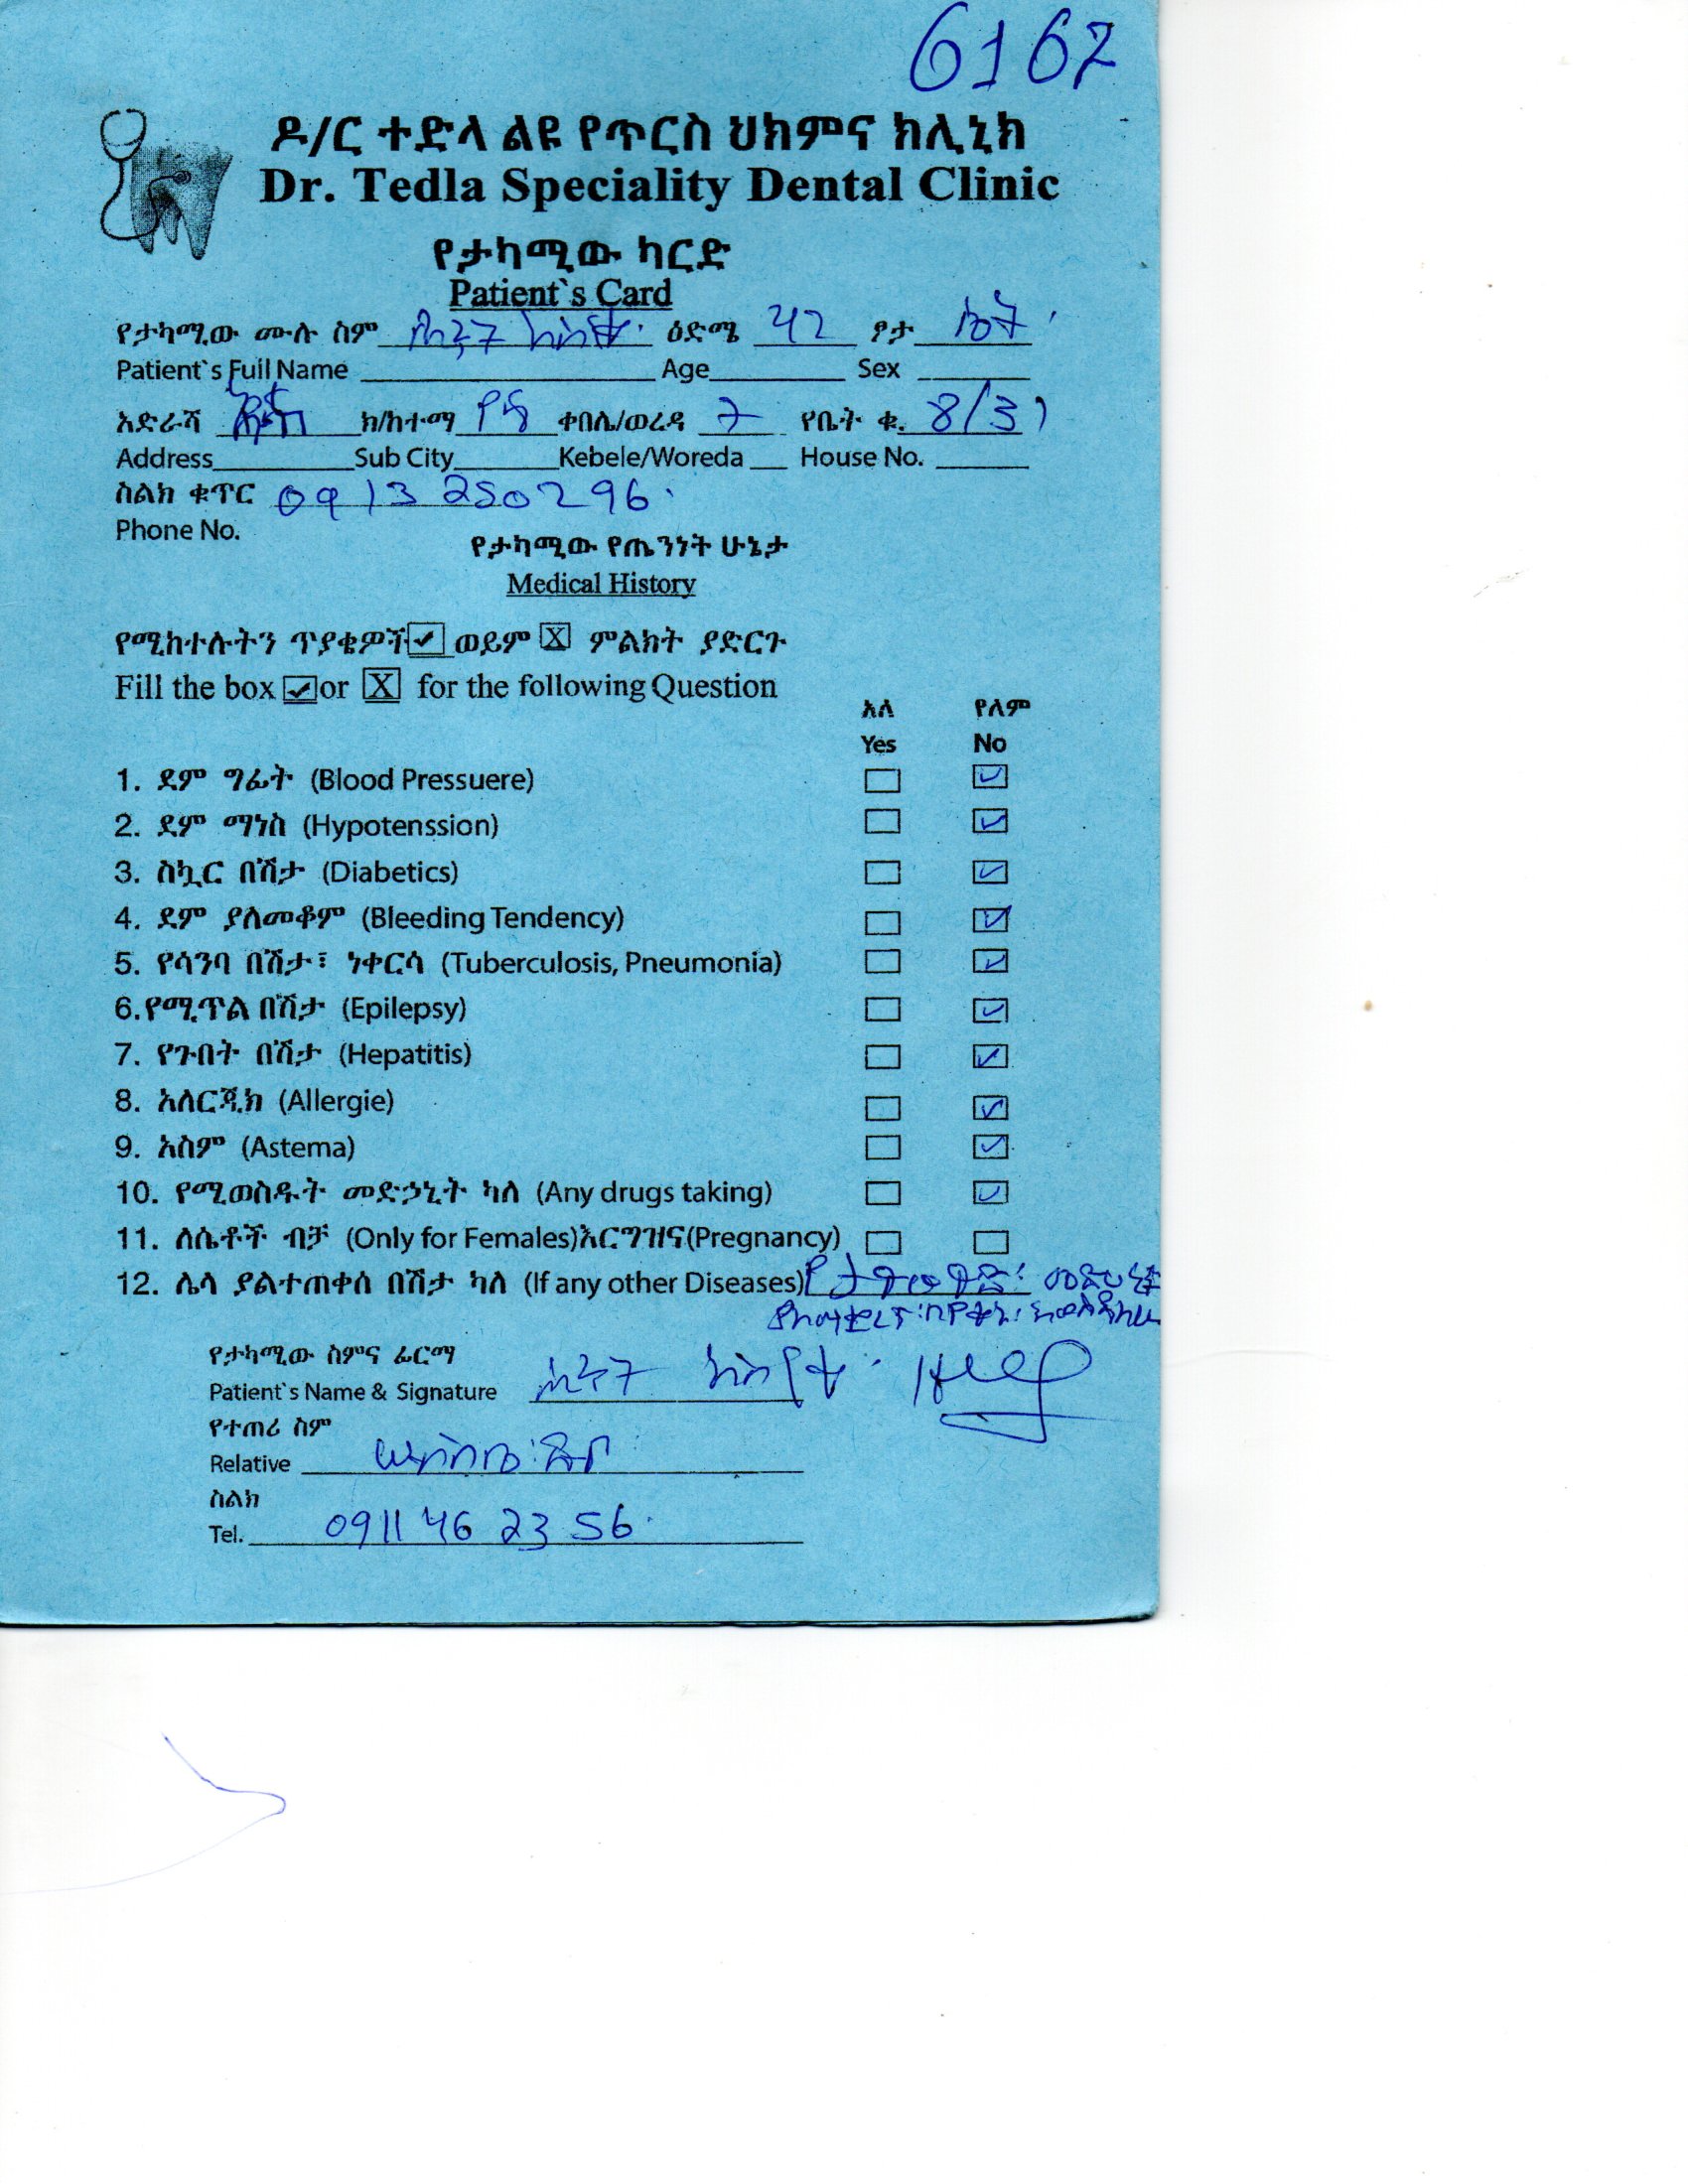 6167
ዶ/ር ተድላ ልዩ የጥርስ ህክምና ክሊኒክ
Dr. Tedla Speciality Dental Clinic
የታካሚው ካርድ
Patient`s Card
የታካሚው ሙሉ ስም ዕድሜ 42 ፆታ ሴት
Patient`s Full Name Age Sex
አድራሻ ክ/ከተማ የካ ቀበሌ/ወረዳ 7 የቤት ቁ. 8/31
Address Sub City Kebele/Woreda House No.
ስልክ ቁጥር 0913 250296
Phone No.
የታካሚው የጤንነት ሁኔታ
Medical History
የሚከተሉትን ጥያቄዎች ✓ ወይም X ምልክት ያድርጉ
Fill the box ✓ or X for the following Question
አለ የለም
Yes No
1. ደም ግፊት (Blood Pressuere)
2. ደም ማነስ (Hypotenssion)
3. ስኳር በሽታ (Diabetics)
4. ደም ያለመቆም (Bleeding Tendency)
5. የሳንባ በሽታ፣ ነቀርሳ (Tuberculosis, Pneumonia)
6.የሚጥል በሽታ (Epilepsy)
7. የጉበት በሽታ (Hepatitis)
8. አለርጂክ (Allergie)
9. አስም (Astema)
10. የሚወስዱት መድኃኒት ካለ (Any drugs taking)
11. ለሴቶች ብቻ (Only for Females)እርግዝና(Pregnancy)
12. ሌላ ያልተጠቀሰ በሽታ ካለ (If any other Diseases)
የታካሚው ስምና ፊርማ
Patient`s Name & Signature
የተጠሪ ስም
Relative
ስልክ
Tel. 0911 46 23 56